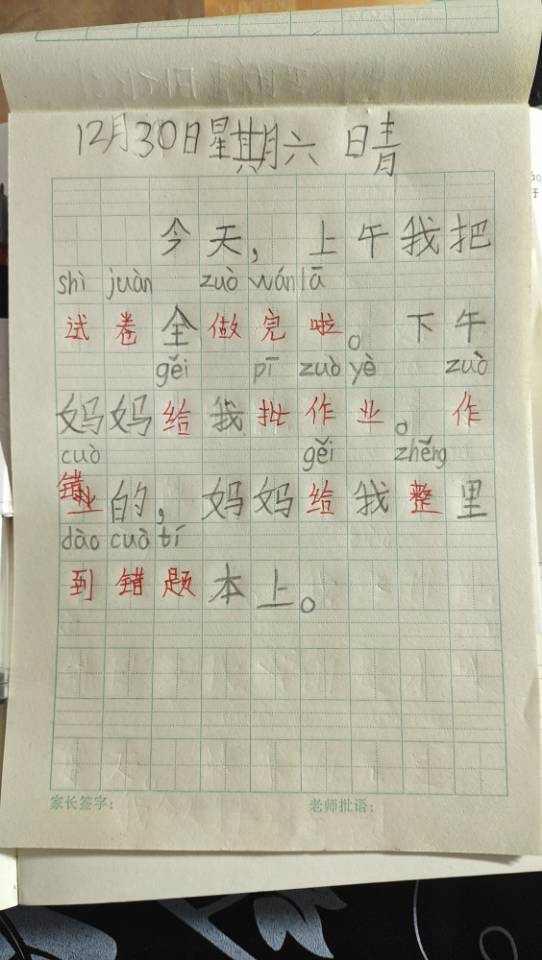 12月30日星期六 晴
今天，上午我把
shì juàn zuò wán lā
试卷全做完啦。下午
gěi pī zuò yè zuò
妈妈给我批作业。作
cuò gěi zhěng
错的，妈妈给我整里
dào cuò tí
到错题本上。
家长签字： 老师批语：